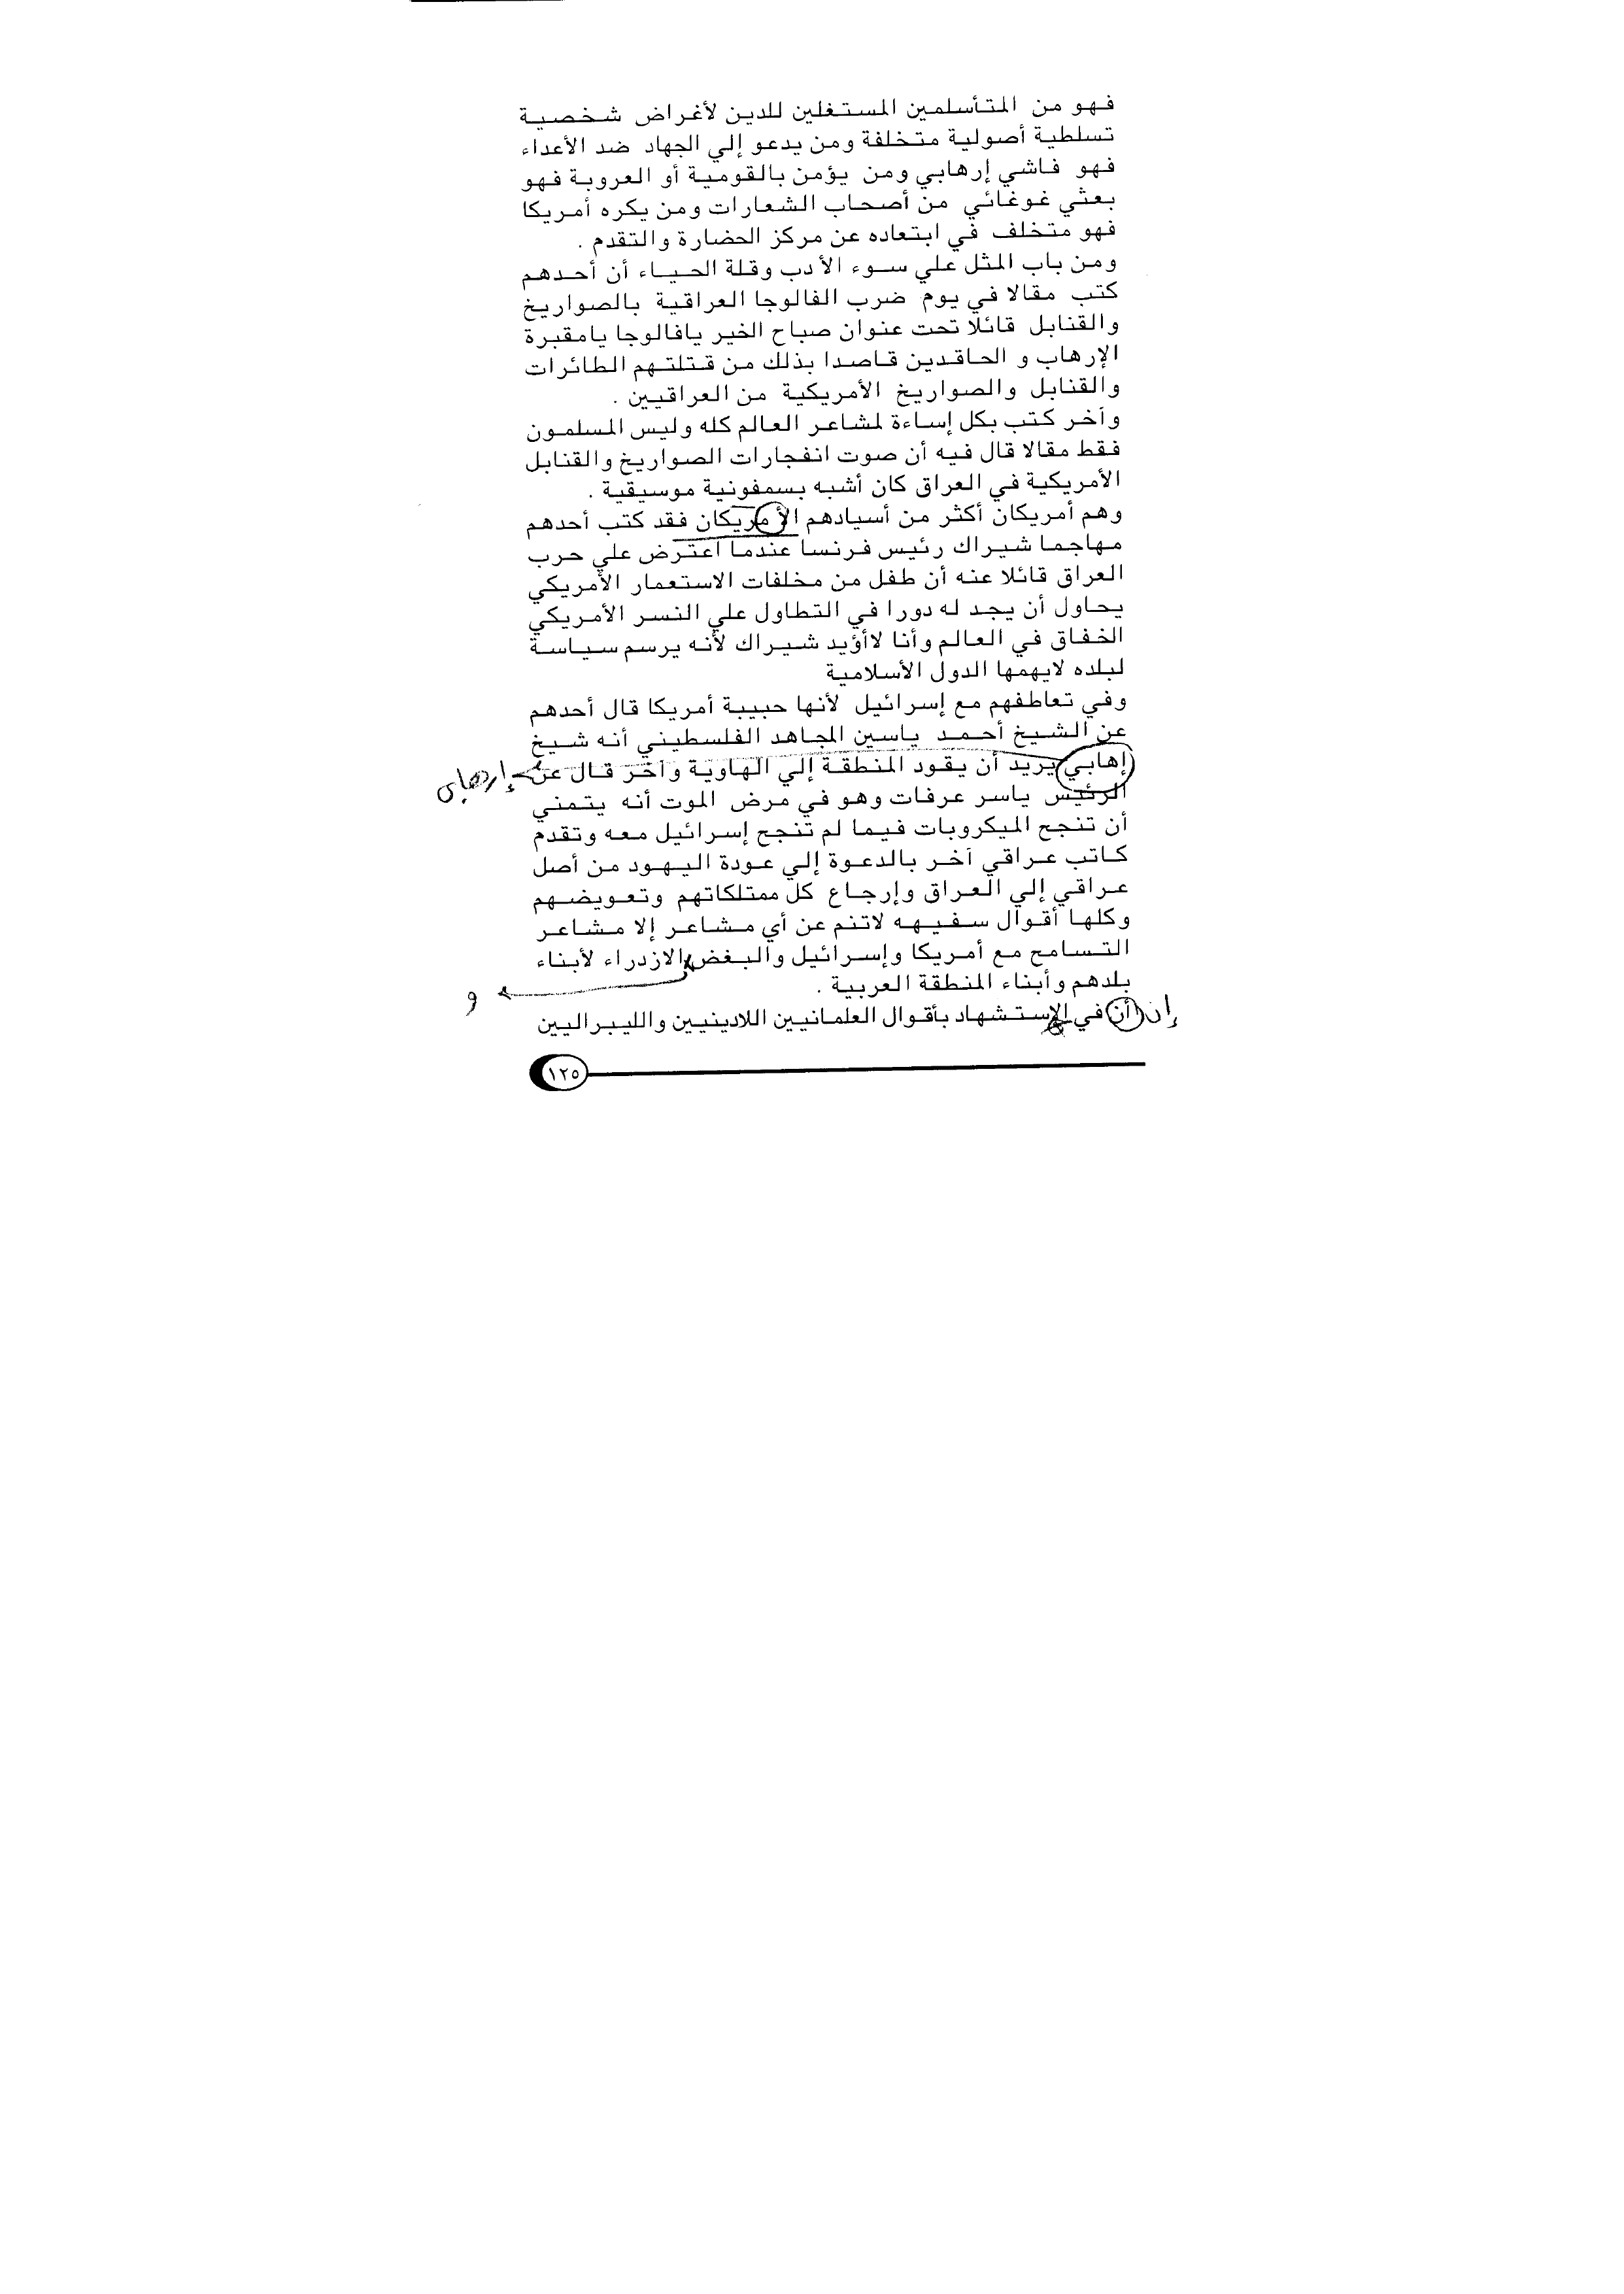 فهو من المتأسلمين المستغلين للدين لأغراض شخصية
تسلطية أصولية متخلفة ومن يدعو إلي الجهاد ضد الأعداء
فهو فاشي إرهابي ومن يؤمن بالقومية أو العروبة فهو
بعثي غوغائي من أصحاب الشعارات ومن يكره أمريكا
فهو متخلف في ابتعاده عن مركز الحضارة والتقدم .
ومن باب المثل علي سوء الأدب وقلة الحياء أن أحدهم
كتب مقالا في يوم ضرب الفالوجا العراقية بالصواريخ
والقنابل قائلا تحت عنوان صباح الخير يافالوجا يامقبرة
الإرهاب و الحاقدين قاصدا بذلك من قتلتهم الطائرات
والقنابل والصواريخ الأمريكية من العراقيين .
وآخر كتب بكل إساءة لمشاعر العالم كله وليس المسلمون
فقط مقالا قال فيه أن صوت انفجارات الصواريخ والقنابل
الأمريكية في العراق كان أشبه بسمفونية موسيقية .
وهم أمريكان أكثر من أسيادهم الأمريكان فقد كتب أحدهم
مهاجما شيراك رئيس فرنسا عندما اعترض علي حرب
العراق قائلا عنه أن طفل من مخلفات الاستعمار الأمريكي
يحاول أن يجد له دورا في التطاول علي النسر الأمريكي
الخفاق في العالم وأنا لاأؤيد شيراك لأنه يرسم سياسة
لبلده لايهمها الدول الأسلامية
وفي تعاطفهم مع إسرائيل لأنها حبيبة أمريكا قال أحدهم
عن الشيخ أحمد ياسين المجاهد الفلسطيني أنه شيخ
إهابي يريد أن يقود المنطقة إلي الهاوية وآخر قال عن إرهابى
الرئيس ياسر عرفات وهو في مرض الموت أنه يتمني
أن تنجح الميكروبات فيما لم تنجح إسرائيل معه وتقدم
كاتب عراقي آخر بالدعوة إلي عودة اليهود من أصل
عراقي إلي العراق وإرجاع كل ممتلكاتهم وتعويضهم
وكلها أقوال سفيهه لاتنم عن أي مشاعر إلا مشاعر
التسامح مع أمريكا وإسرائيل والبغض الازدراء لأبناء
بلدهم وأبناء المنطقة العربية . و
إن أن في الإستشهاد بأقوال العلمانيين اللادينيين والليبراليين
١٢٥